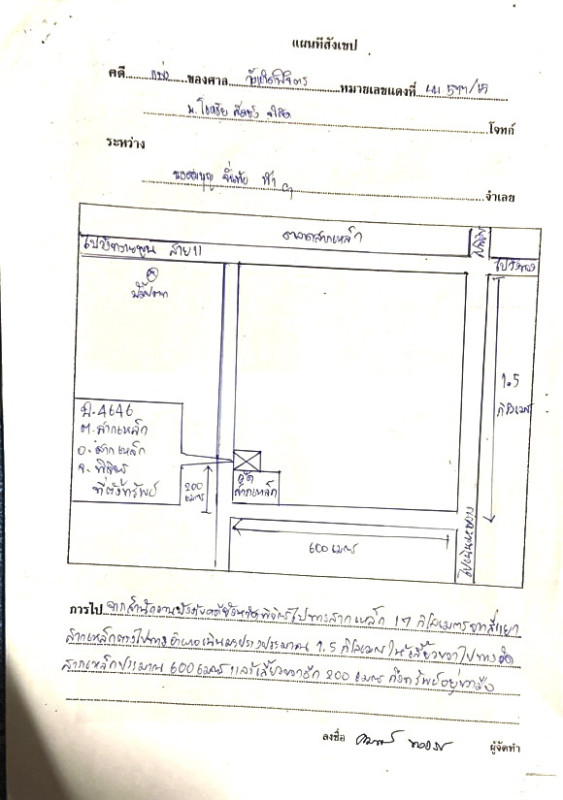 แผนที่สังเขป
คดี แพ่ง ของศาล จังหวัดพิจิตร หมายเลขแดงที่
บ. โจทก์
ระหว่าง
จำเลย
ตลาดสากเหล็ก
ไปวังทรายพูน สาย 11
ไปวังทอง
1.5
กิโลเมตร
ฉ.4646
ต.สากเหล็ก
อ.สากเหล็ก
จ.พิจิตร
ที่ตั้งทรัพย์
200
เมตร
วัด
สากเหล็ก
600 เมตร
ไปเนินมะปราง
การไป จากสำนักงานบังคับคดีจังหวัดพิจิตรไปทางสากเหล็ก 17 กิโลเมตร จากสี่แยก
สากเหล็กตรงไปทางอำเภอเนินมะปรางประมาณ 1.5 กิโลเมตร ให้เลี้ยวขวาไปทางวัด
สากเหล็กประมาณ 600 เมตร แล้วเลี้ยวขวาอีก 200 เมตร ถึงทรัพย์อยู่ขวามือ
ลงชื่อ ผู้จัดทำ